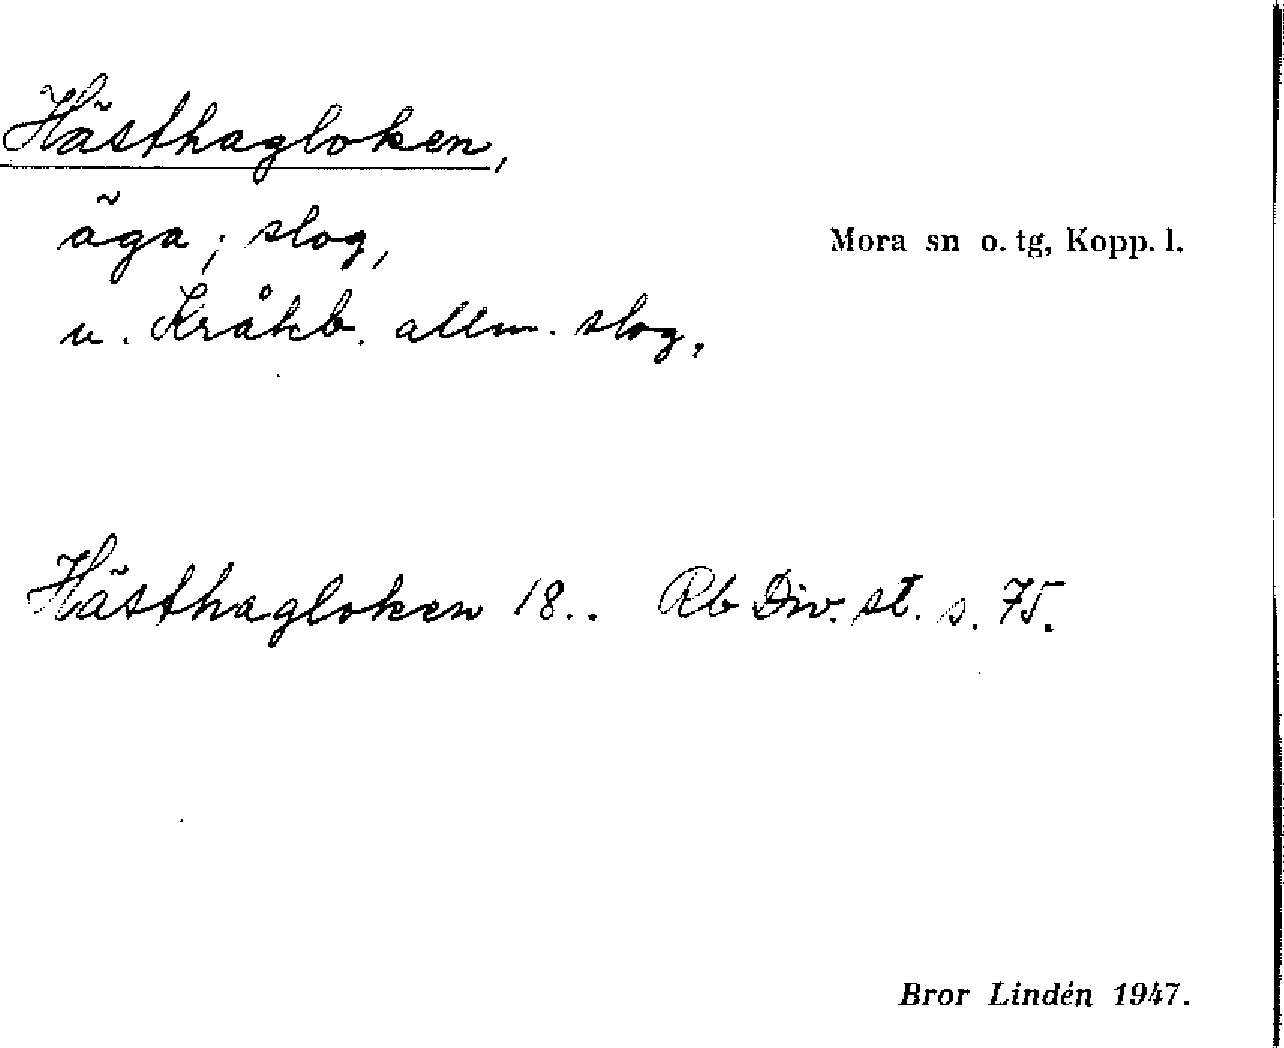 Hästhagloken,
äga; slog,
Mora sn o. tg, Kopp. l.
u. Kråkb. allm. slog.
Hästhagloken 18.. Rb Div. st. s. 75.
Bror Lindén 1947.